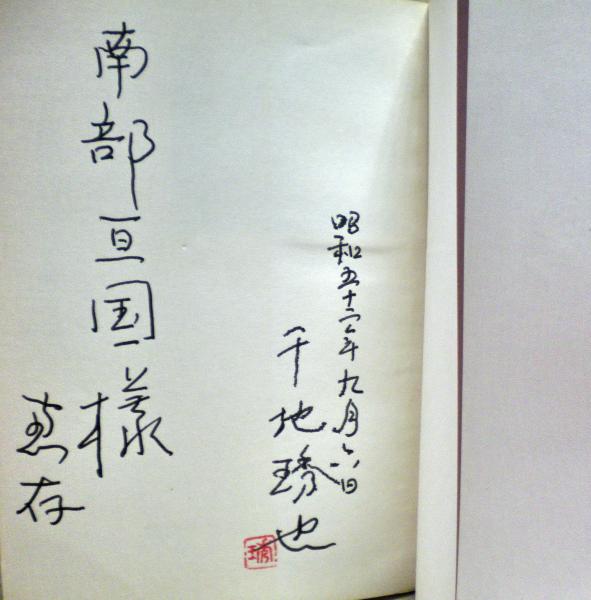 昭和五十二年九月六日
千地琇也
琇
南部亘国様
恵存